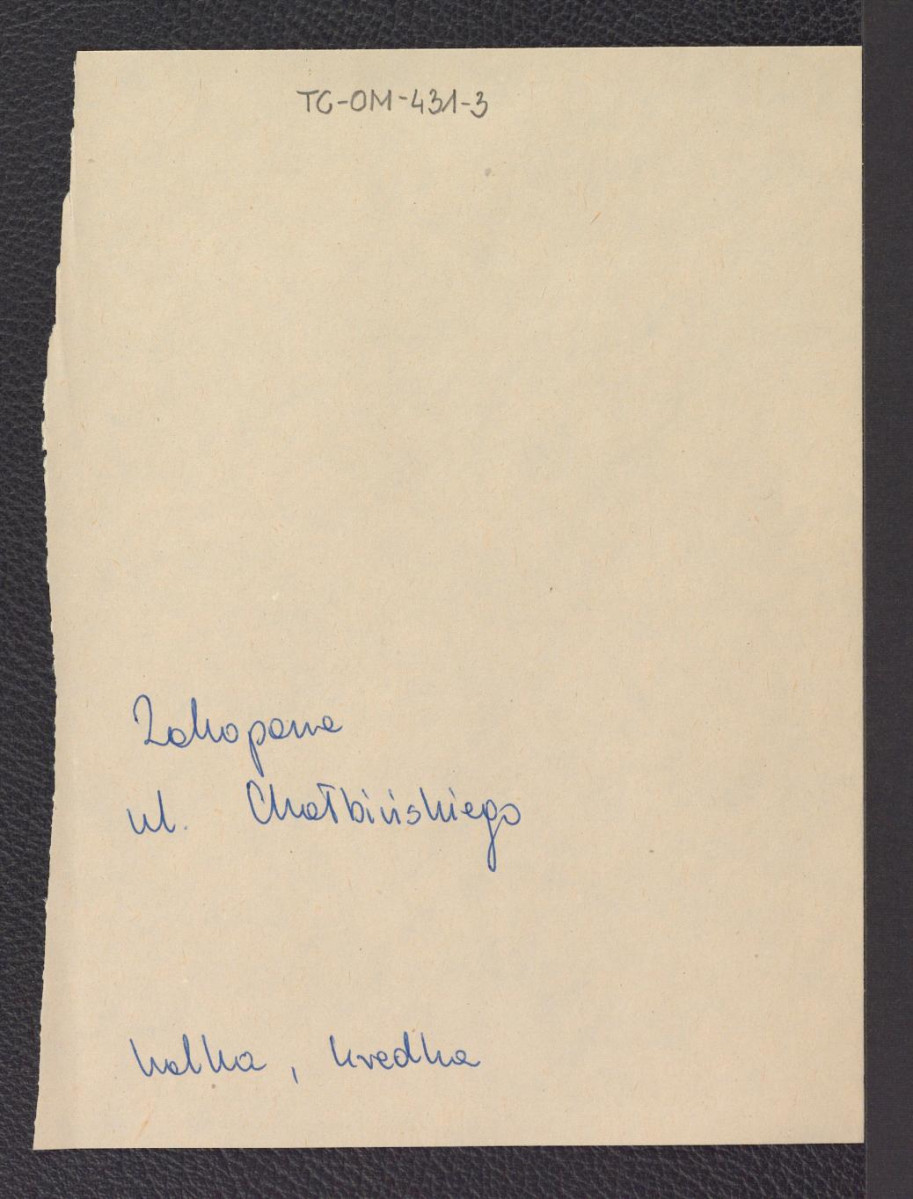 TG-OM-431-3
Zakopane
ul. Chałbińskiego
kalka, kredka